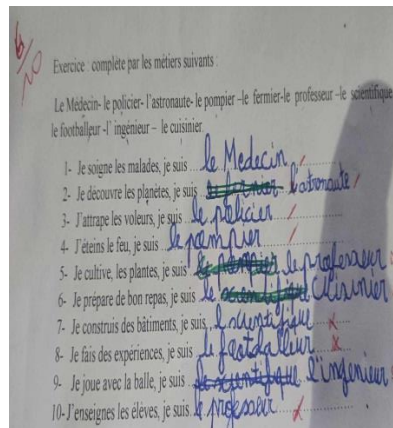 5/20
Exercice : complète par les métiers suivants :
Le Médecin- le policier- l'astronaute- le pompier –le fermier-le professeur –le scientifique
le footballeur -l' ingénieur – le cuisinier
1- Je soigne les malades, je suis ...le Medecin
2- Je découvre les planètes, je suis l'atronaute
3- J'attrape les voleurs, je suis ...le policier
4- J'éteins le feu, je suis ...le pompier
5- Je cultive, les plantes, je suis le professeur
6- Je prépare de bon repas, je suis le cuisinier
7- Je construis des bâtiments, je suis... scientifique
8- Je fais des expériences, je suis ..le footballeur
9- Je joue avec la balle, je suis l'ingenieur
10- J'enseignes les élèves, je suis. professeur